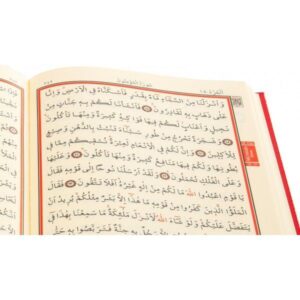 سُورَةُ الْمُؤْمِنُونَ
اَلْجُزْءُ ١٨
وَاَنْزَلْنَا مِنَ السَّمَٓاءِ مَٓاءً بِقَدَرٍ فَاَسْكَنَّاهُ فِي الْاَرْضِ وَاِنَّا
عَلٰى ذَهَابٍ بِه۪ لَقَادِرُونَ فَاَنْشَأْنَا لَكُمْ بِه۪ جَنَّاتٍ مِنْ
نَخ۪يلٍ وَاَعْنَابٍ لَكُمْ ف۪يهَا فَوَاكِهُ كَث۪يرَةٌ وَمِنْهَا تَأْكُلُونَ
وَشَجَرَةً تَخْرُجُ مِنْ طُورِ سَيْنَٓاءَ تَنْبُتُ بِالدُّهْنِ وَصِبْغٍ
لِلْاٰكِل۪ينَ وَاِنَّ لَكُمْ فِي الْاَنْعَامِ لَعِبْرَةً نُسْق۪يكُمْ مِمَّا ف۪ي
بُطُونِهَا وَلَكُمْ ف۪يهَا مَنَافِعُ كَث۪يرَةٌ وَمِنْهَا تَأْكُلُونَ وَعَلَيْهَا
وَعَلَى الْفُلْكِ تُحْمَلُونَ وَلَقَدْ اَرْسَلْنَا نُوحًا اِلٰى قَوْمِه۪ فَقَالَ
يَا قَوْمِ اعْبُدُوا اللّٰهَ مَا لَكُمْ مِنْ اِلٰهٍ غَيْرُهُ اَفَلَا تَتَّقُونَ فَقَالَ
الْمَلَؤُا الَّذ۪ينَ كَفَرُوا مِنْ قَوْمِه۪ مَا هٰذَٓا اِلَّا بَشَرٌ مِثْلُكُمْ يُر۪يدُ اَنْ
يَتَفَضَّلَ عَلَيْكُمْ وَلَوْ شَٓاءَ اللّٰهُ لَاَنْزَلَ مَلٰٓئِكَةً مَا سَمِعْنَا بِهٰذَا ف۪ٓي
اِنْ هُوَ اِلَّا رَجُلٌ بِه۪ جِنَّةٌ فَتَرَبَّصُوا بِه۪